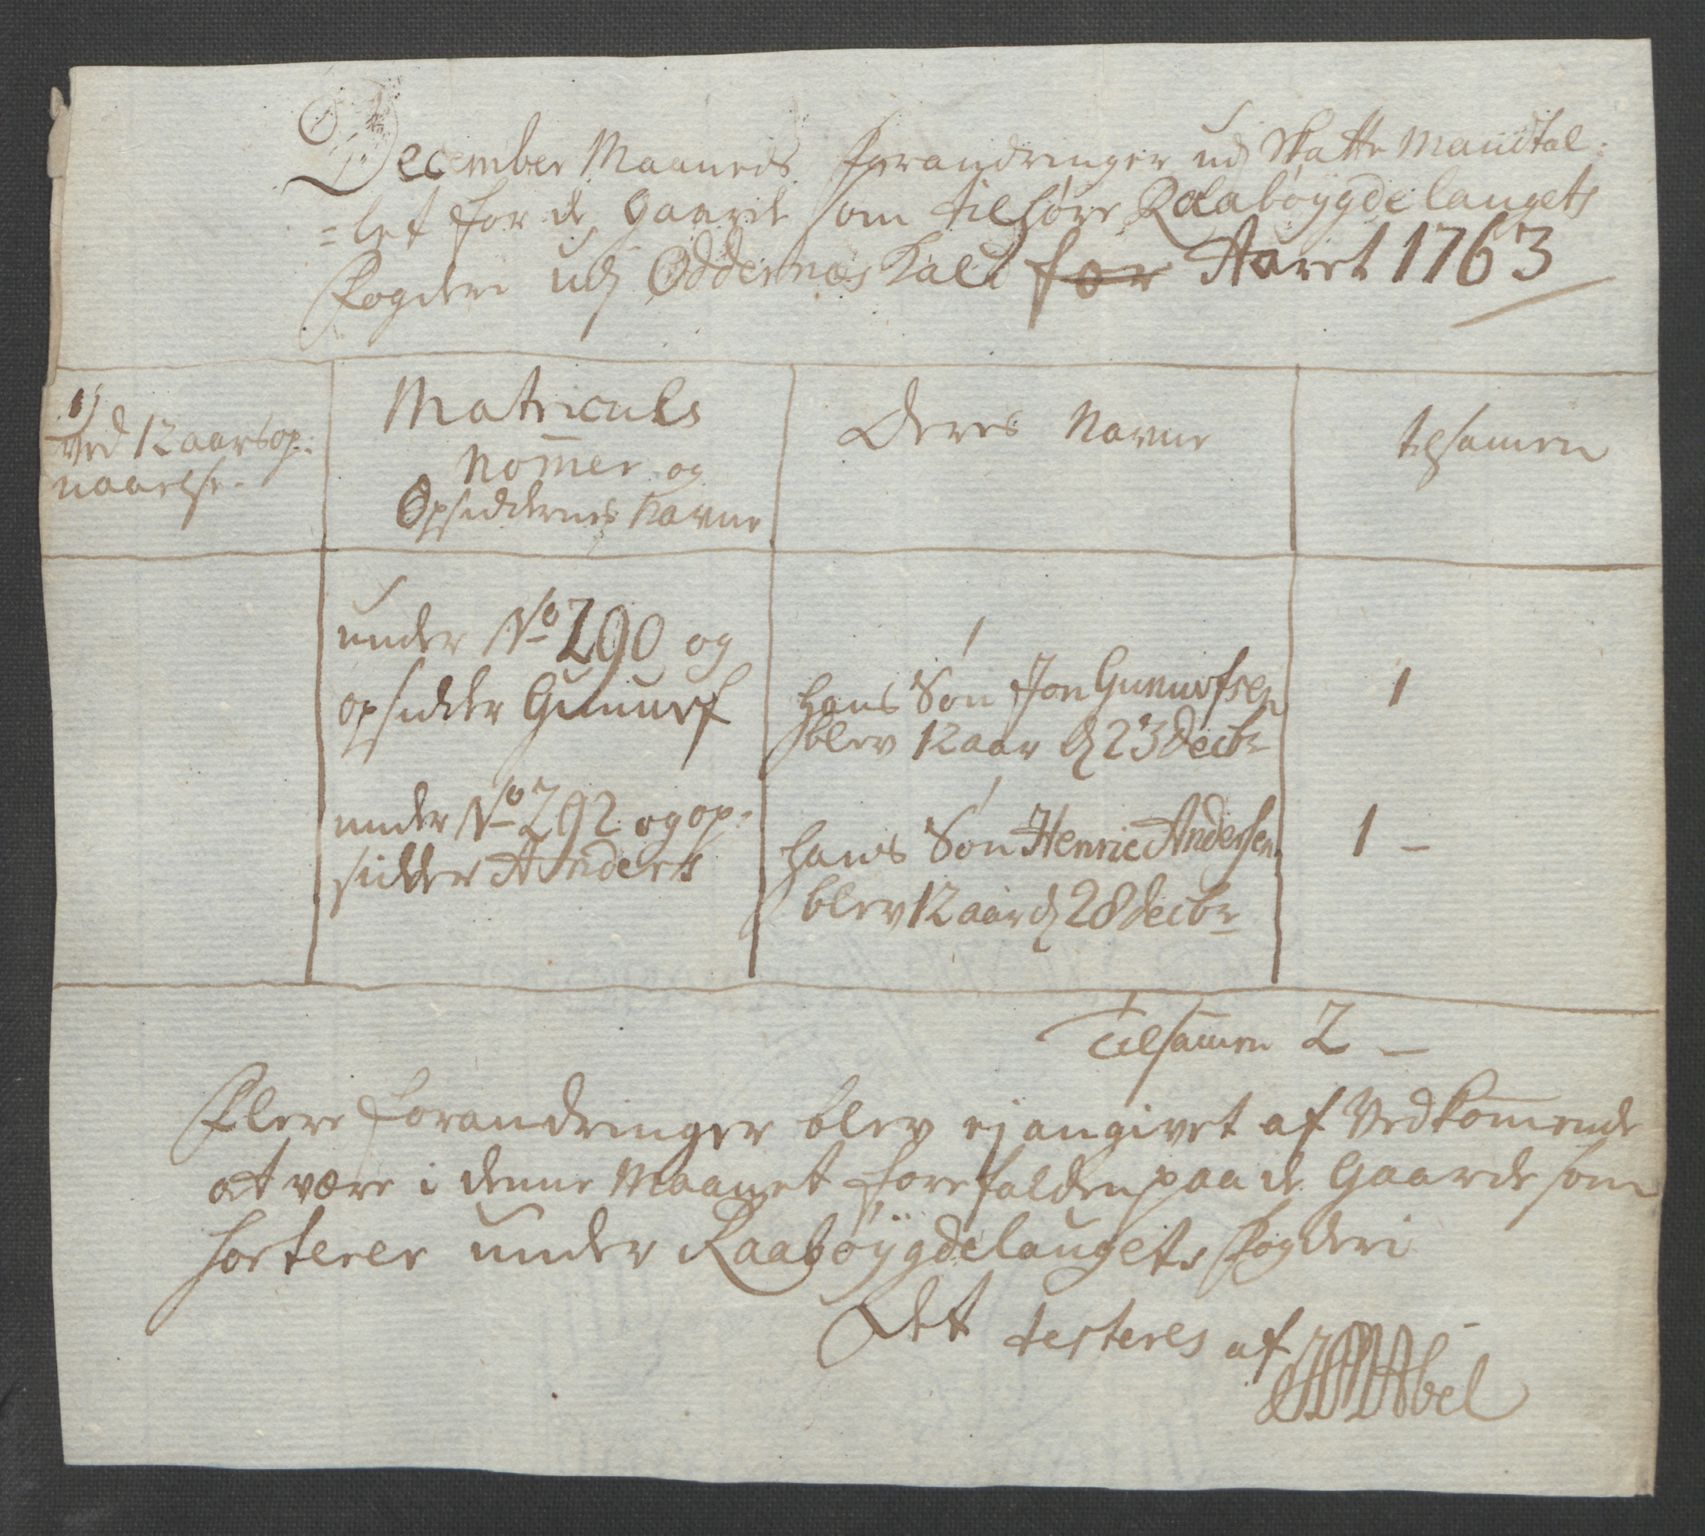 December Maaneds forandringer udj Skatte Mandtal-
=let for de Gaarde som tilhøre Raabøygdelaugets
Fogderi udj Oddernæs Kald for Aaret 1763
1) ved 12 aars op-
naaelse.
Matriculs
Nom̄er og
Opsiddernes Navne
Deres Navne
tilsamen
under No 290 og
opsidder Gunuf
hans Søn Jon Gunufsen
blev 12 aar d 23 Decbr
1
under No 292 og op-
sidder Anders
hans Søn Henric Andersen
blev 12 aar d 28 Decbr
1 –
Tilsamen 2 –
Flere forandringer blev ej angivet af Vedkom̄ende
at være i denne Maanet forefalden paa de Gaarde som
sorterer under Raabøygdelaugets Fogderi
Det testeres af
Abel